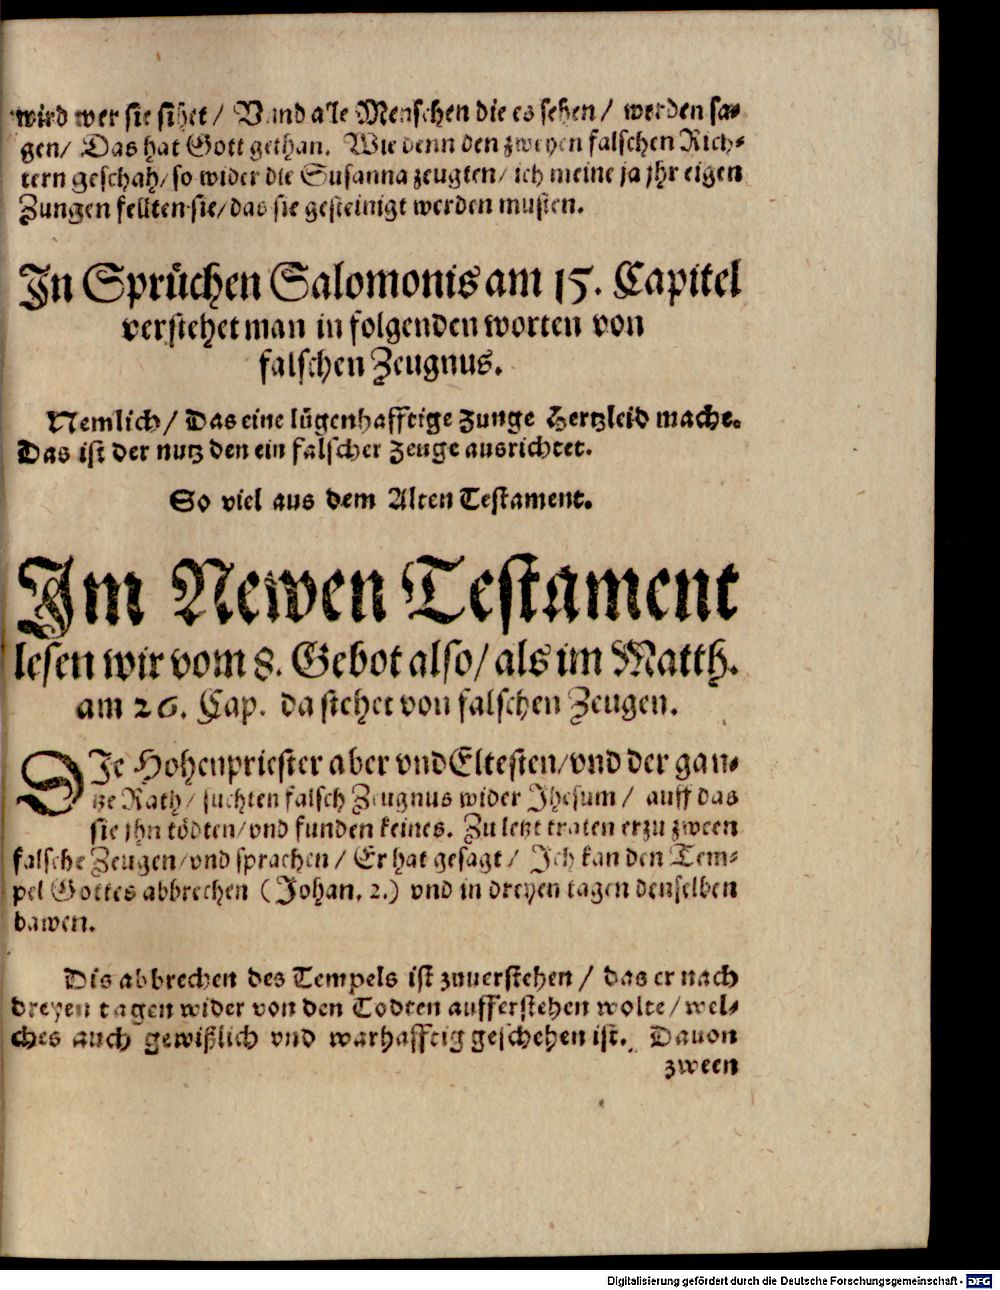 84
wird wer sie sihet / Vnnd alle Menschen die es sehen / werden sa-
gen / Das hat Gott gethan. Wie denn den zweyen falschen Rich-
tern geschah / so wider die Susanna zeugten / ich meine ja jhr eigen
Zungen felleten sie / das sie gesteinigt werden musten.
In Sprüchen Salomonis am 15. Capitel
verstehet man in folgenden worten von
falschen Zeugnus.
Nemlich / Das eine lügenhafftige Zunge Hertzleid mache.
Das ist der nutz den ein falscher Zeuge ausrichtet.
So viel aus dem Alten Testament.
Im Newen Testament
lesen wir vom 8. Gebot also / als im Matth.
am 26. Cap. da stehet von falschen Zeugen.
DIe Hohenpriester aber vnd Eltesten / vnd der gan-
tze Rath / suchten falsch Zeugnus wider Jhesum / auff das
sie jhn tödten / vnd funden keines. Zu letzt traten erzu zween
falsche Zeugen / vnd sprachen / Er hat gesagt / Ich kan den Tem-
pel Gottes abbrechen (Johan. 2.) vnd in dreyen tagen denselben
bawen.
Dis abbrechen des Tempels ist zuuerstehen / das er nach
dreyen tagen wider von den Todten aufferstehen wolte / wel-
ches auch gewißlich vnd warhafftig geschehen ist. Dauon
zween
Digitalisierung gefördert durch die Deutsche Forschungsgemeinschaft - DFG